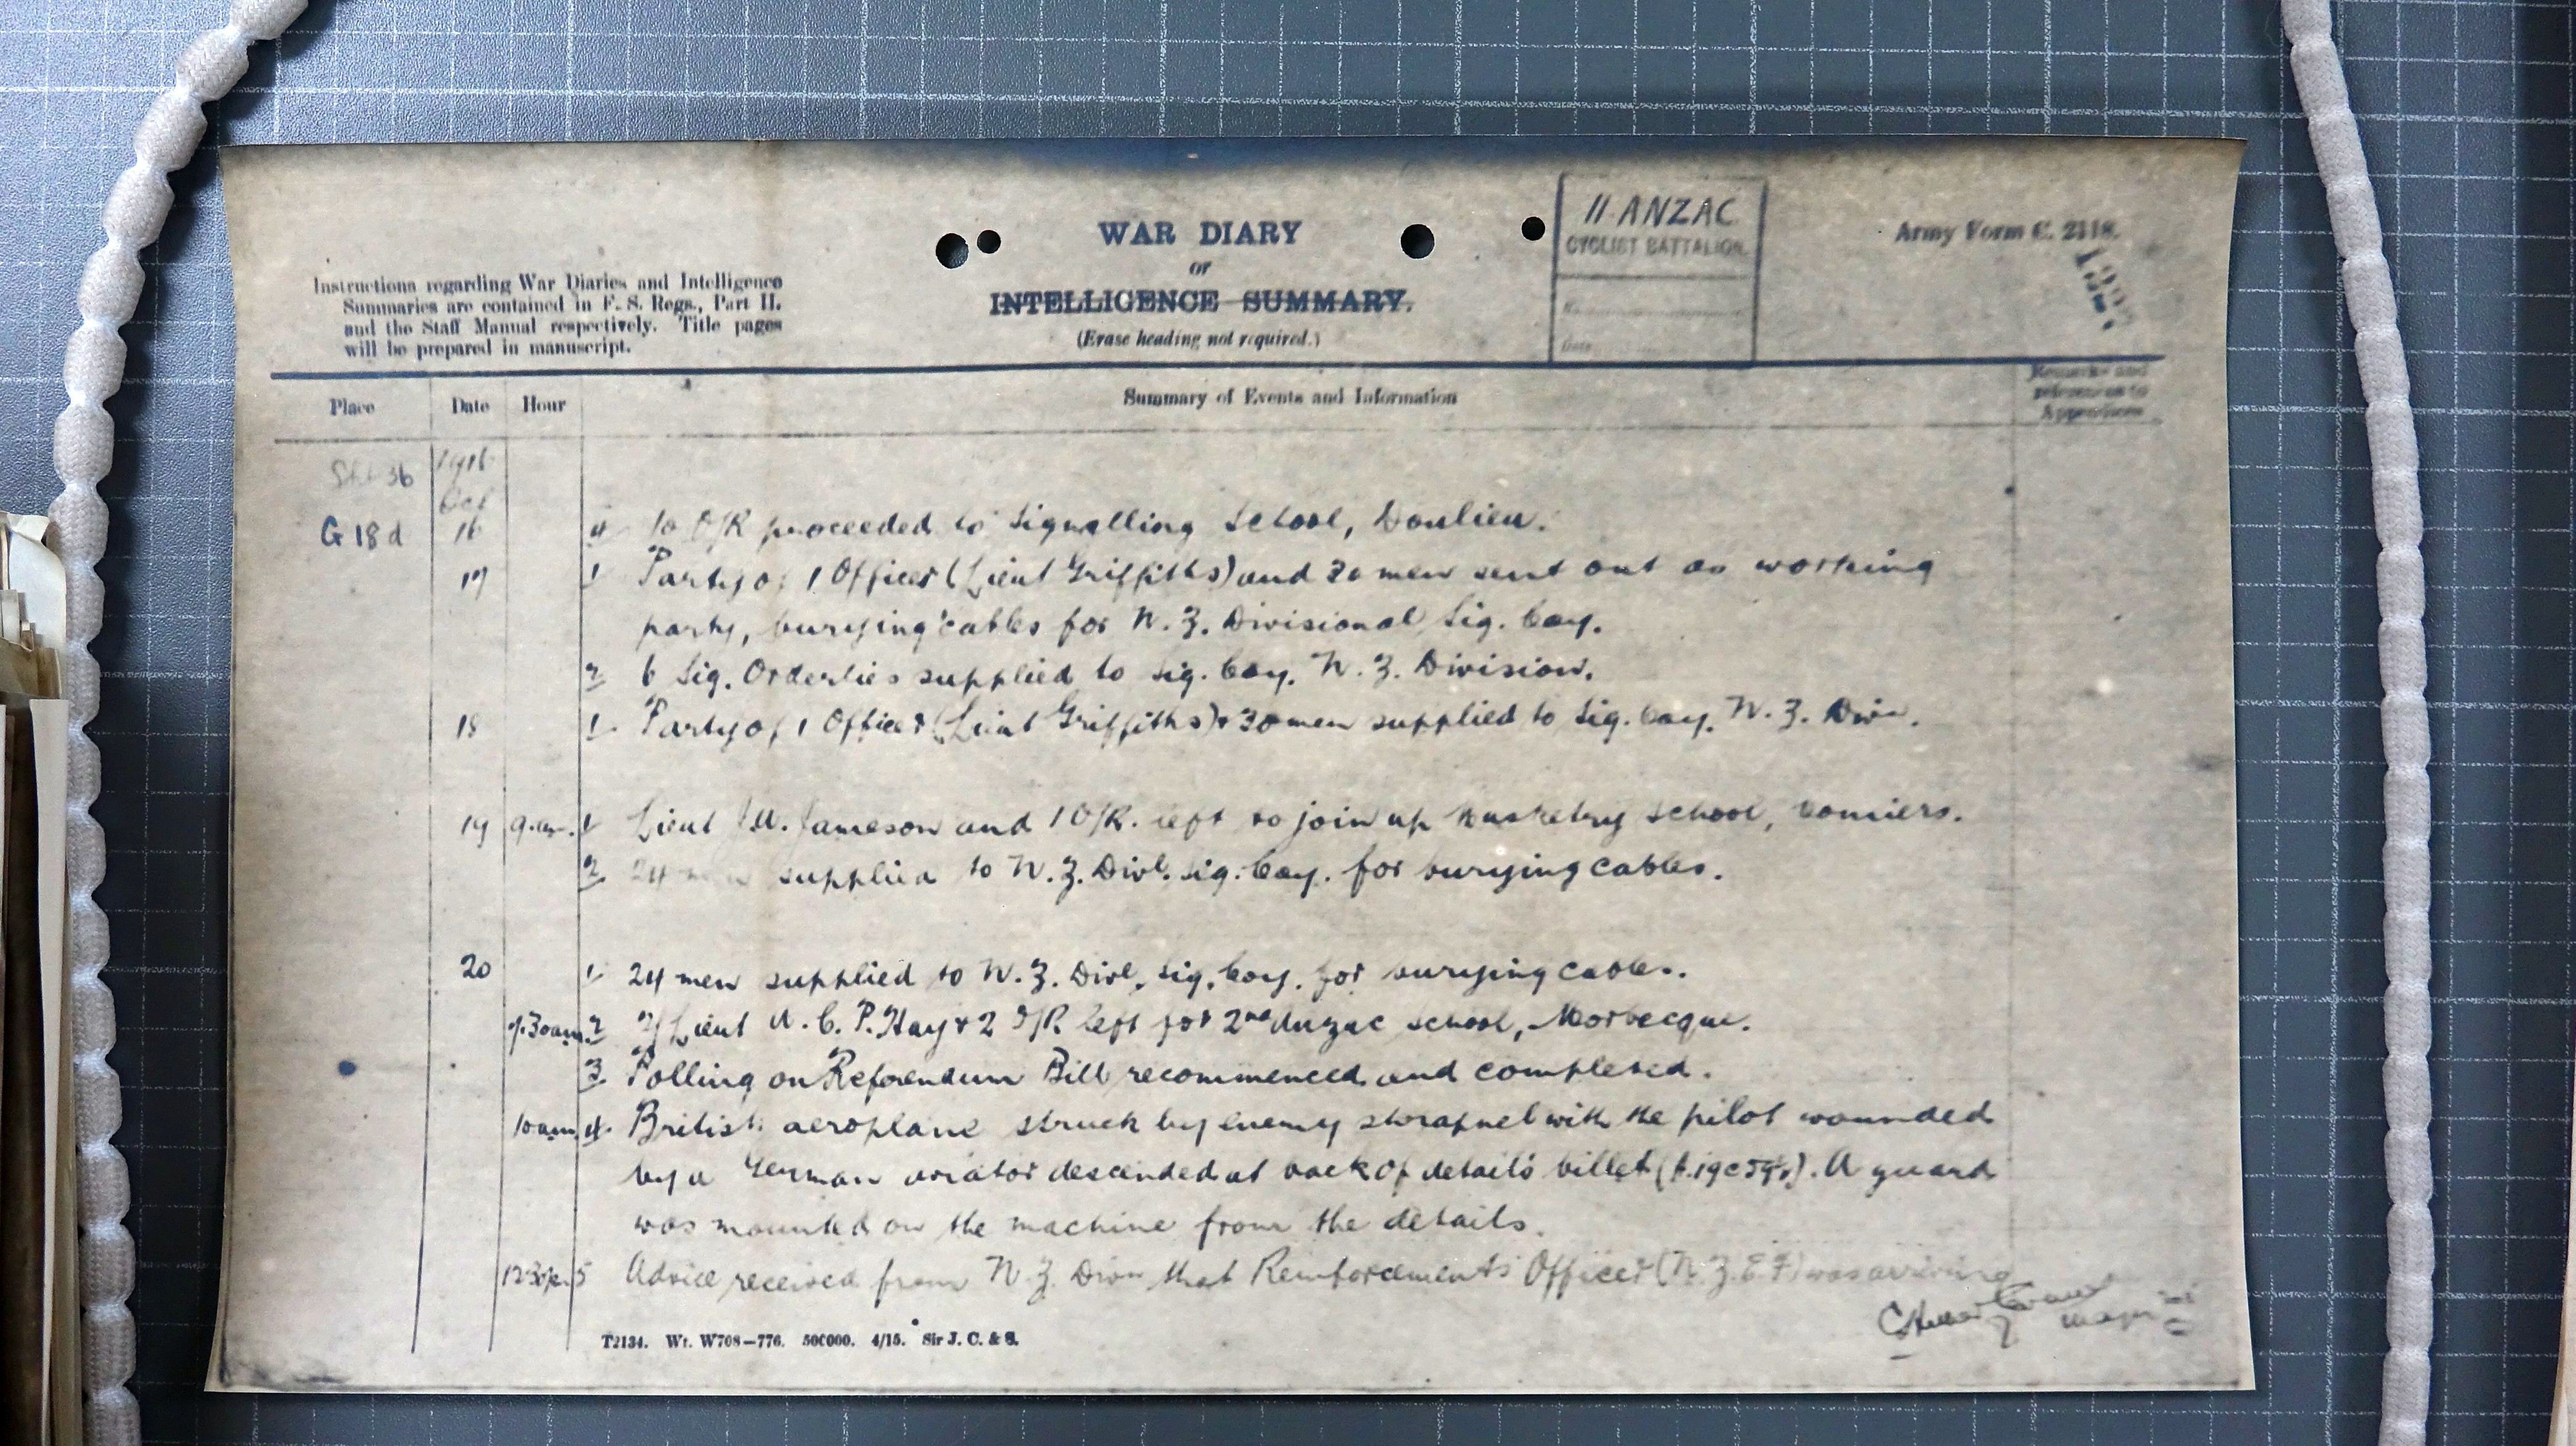 WAR DIARY
or
INTELLIGENCE SUMMARY.
(Erase heading not required.)
Instructions regarding War Diaries and Intelligence
Summaries are contained in F. S. Regs., Part II.
and the Staff Manual respectively. Title pages
will be prepared in manuscript.
11 ANZAC
CYCLIST BATTALION.
No.
Date
Army Form C. 2118.
Place Date Hour Summary of Events and Information Remarks and
references to
Appendices
Sht 36 1916
Oct
G 18 d 16 4 10 O/R proceeded to Signalling School, Doulieu.
17 1 Party of 1 Officer (Lieut Griffiths) and 30 men sent out as working
party, burying cables for N. Z. Divisional Sig. Coy.
2 6 Sig. Orderlies supplied to Sig. Coy. N. Z. Division.
18 1 Party of 1 Officer (Lieut Griffiths) & 30 men supplied to Sig. Coy. N. Z. Divn.
19 9.am. 1 Lieut Jameson and 1 O/R. left to join up Musketry School,
2 24 men supplied to N. Z. Divl. Sig. Coy. for burying cables.
20 1 24 men supplied to N. Z. Divl. Sig. Coy. for burying cables.
7.30am 2 2/Lieut A. C. P. Hay & 2 O/R left for 2nd Anzac School, Morbecque.
3 Polling on Referendum Bill recommenced and completed.
10am 4 British aeroplane struck by enemy shrapnel with the pilot wounded
by a German aviator descended at back of details billet. A guard
was mounted on the machine from the details.
12.30p. 5 Advice received from N Z. Divn that Reinforcements Officer (N. Z. E F) was arriving
Major
T2134. Wt. W708—776. 500000. 4/15. Sir J. C. & S.